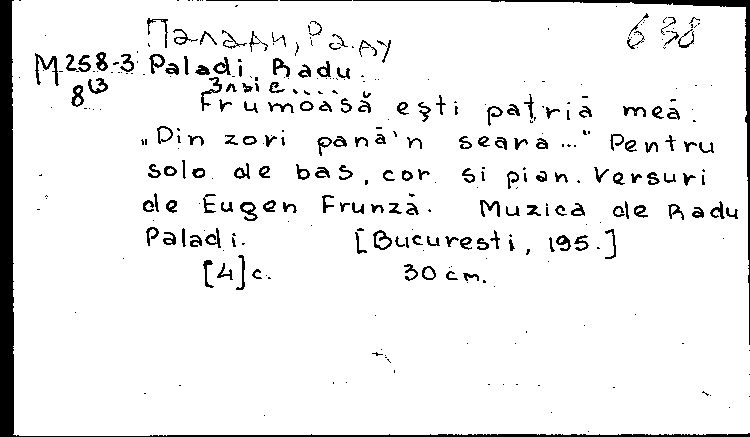 Палади, Раду 638
М258-3 Paladi, Radu.
8(3
Frumoasă eşti patriă meă.
„Din zori pană'n seara..." Pentru
solo de bas, cor si pian. Versuri
de Eugen Frunză. Muzica de Radu
Paladi. [Bucuresti, 195.]
[4]c. 30 cm.